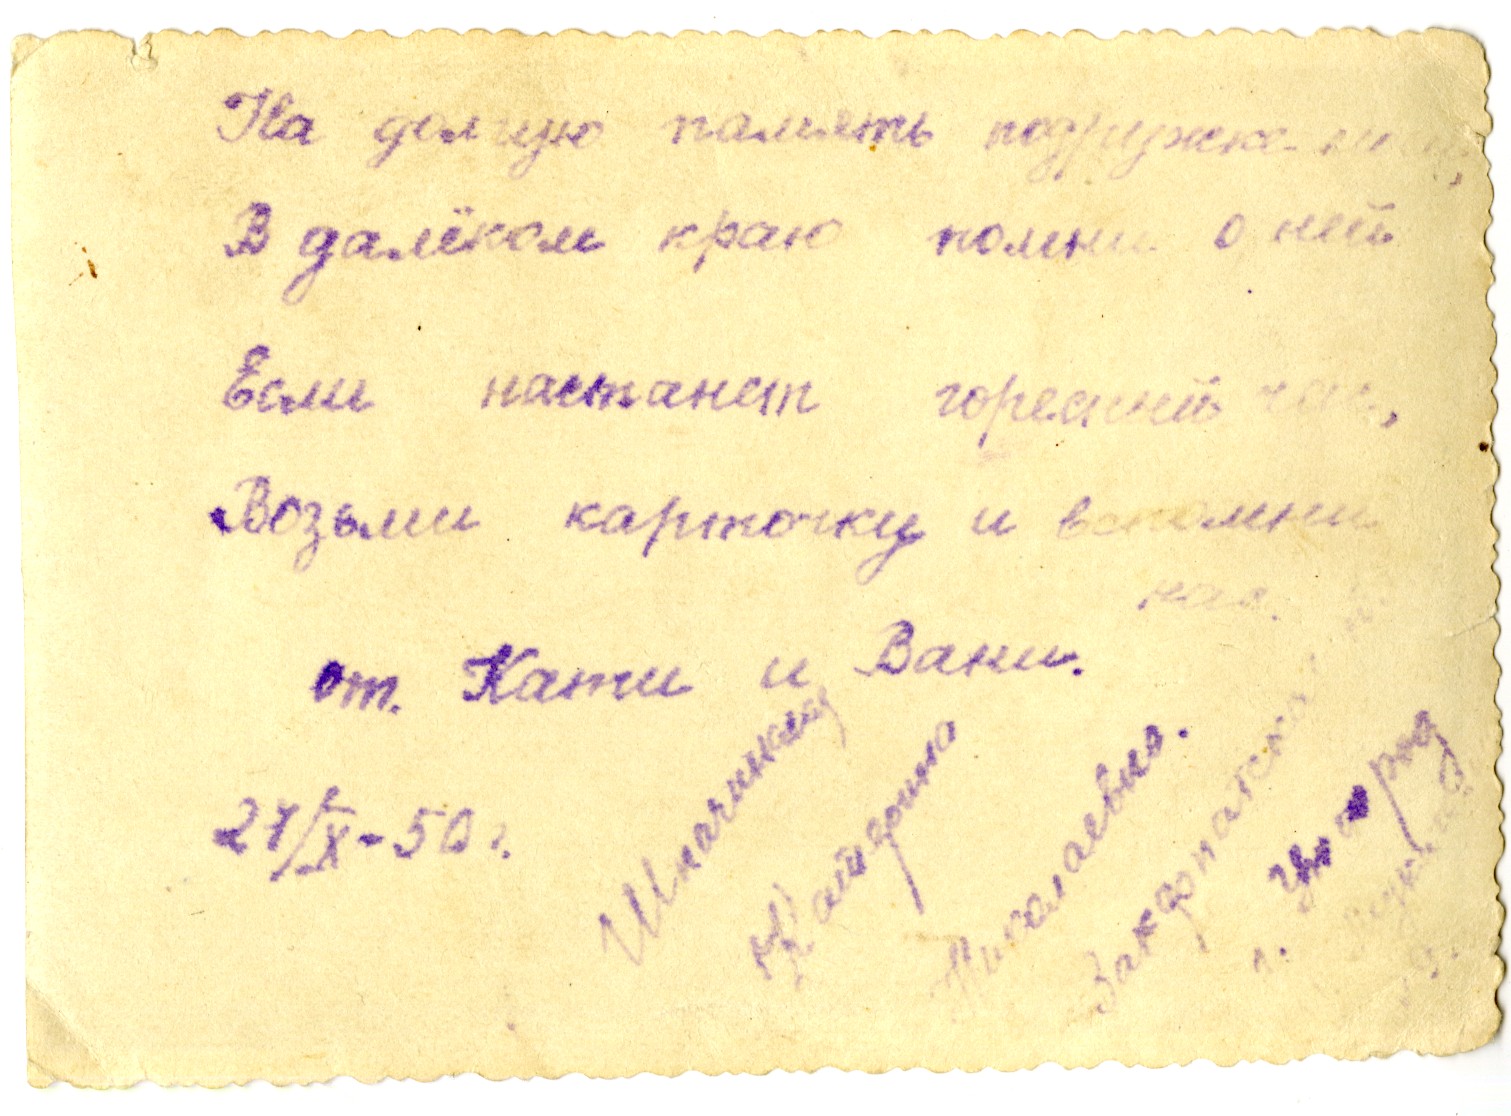 На долгую память подружке
В далёком краю помни о ней
Если настанет горестный час,
Возьми карточку и вспомни
нас.
от. Кати и Вани.
24/IX-50 г.
Николаевна.
Закарпатская
г. Ужгород